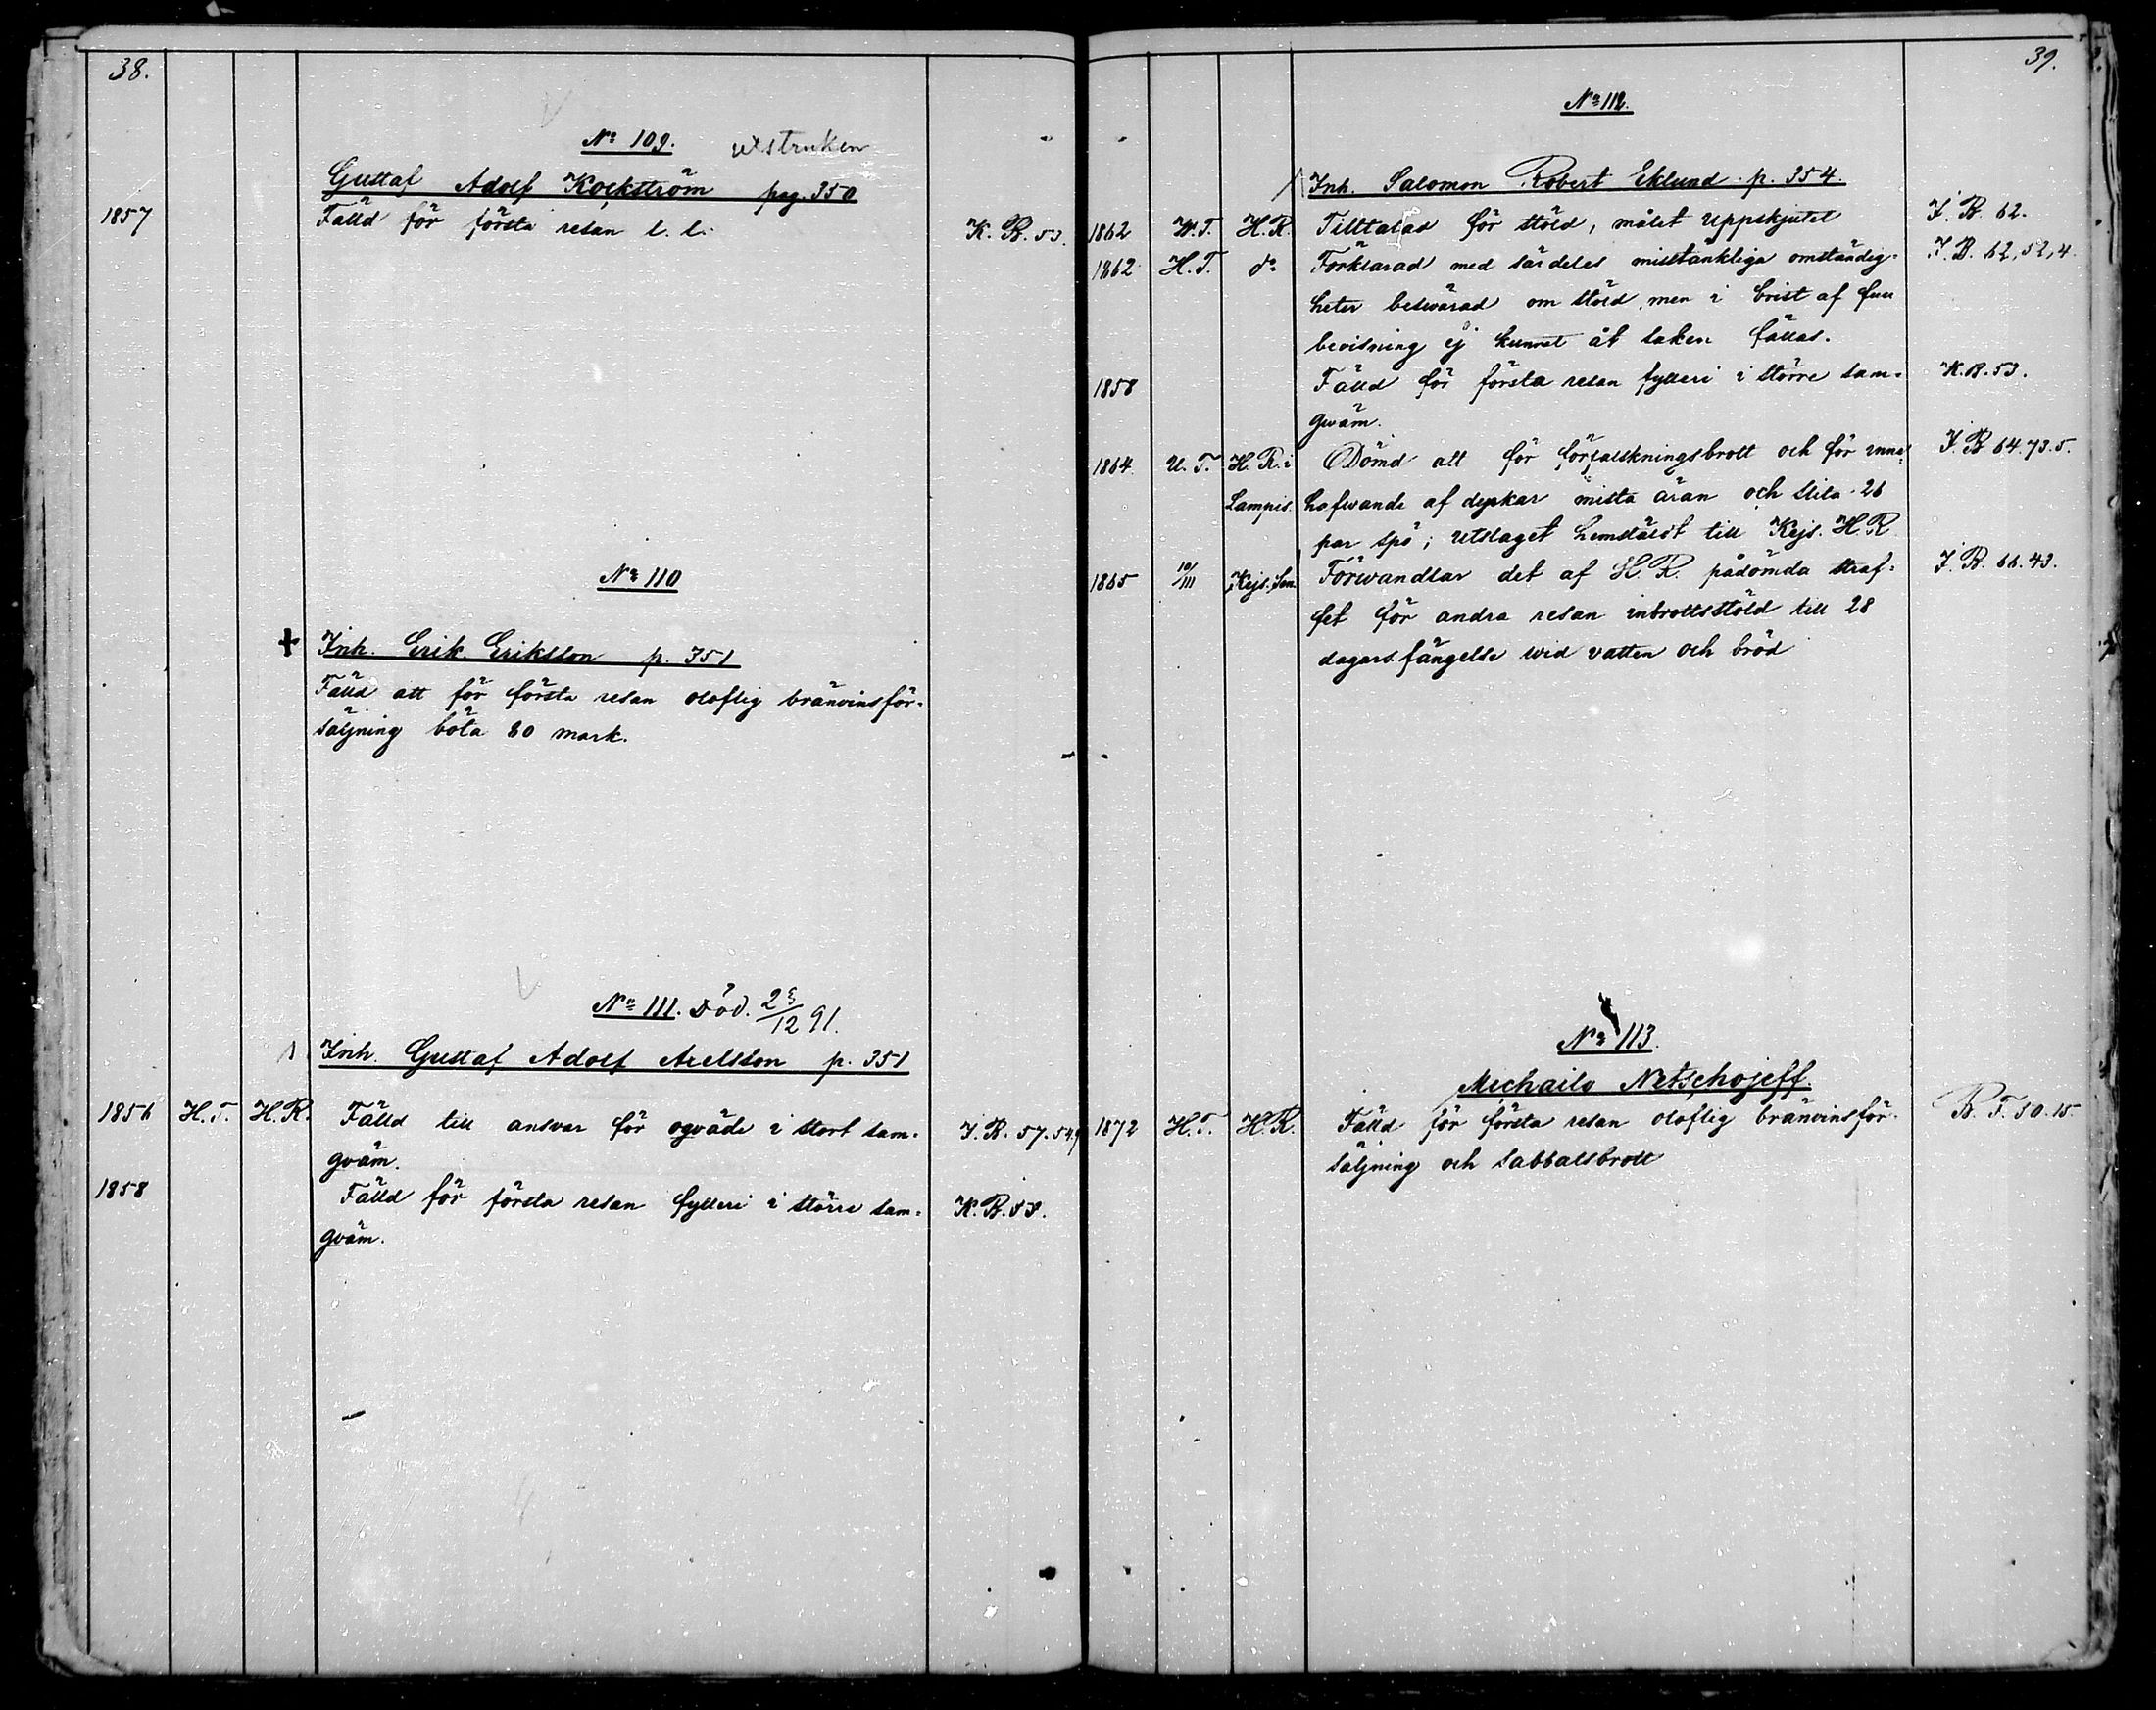 38.
No 109. utstruken
Gustaf Adolf Kockström pag. 350
1857 Fälld för första resan l. l. K. B. 53.
No 110
+ Inh. Erik Eriksson p. 351
Fälld att för första resan oloflig bränvinsför-
säljning böta 80 mark.
No 111. Död. 25/12 91.
Inh. Gustaf Adolf Axelsson p. 351
1856 H.T. H.R. Fälld till ansvar för ogväde i stort sam- J. B. 57.54.9
gväm.
1858 Fälld för första resan fylleri i större sam- K. B. 53.
gväm.
39.
No 112.
Inh. Salomon Robert Eklund p. 354.
1862 W.T. H.R. Tilltalad för stöld, målet uppskjutet J. B. 62.
1862 H.T. do Förklarad med särdeles misstänkliga omständig- J. B. 62, 52, 4.
heter beswärad om stöld, men i brist af full
bevisning ej kunnat åt saken fällas.
1858 Fälld för första resan fylleri i större sam- K. B. 53.
gwäm.
1864 U.T. H.R. i Dömd att för förfalskningsbrott och för inne- J. B 64.73.5.
Lampis. hafwande af dyrkar mista äran och slita 26
par spö; utslaget hemstäldt till Kejs. H.R
1865 10/III Kejs. Sen. Förwandlar det af H.R. pådömda straf- J. B. 66.43.
fet för andra resan inbrottsstöld till 28
dagars fängelse wid vatten och bröd
No 113.
Michailo Netschojeff.
1872 H.T. H.R. Fälld för första resan oloflig bränvinsför- B. T. 50.15.
säljning och sabbatsbrott